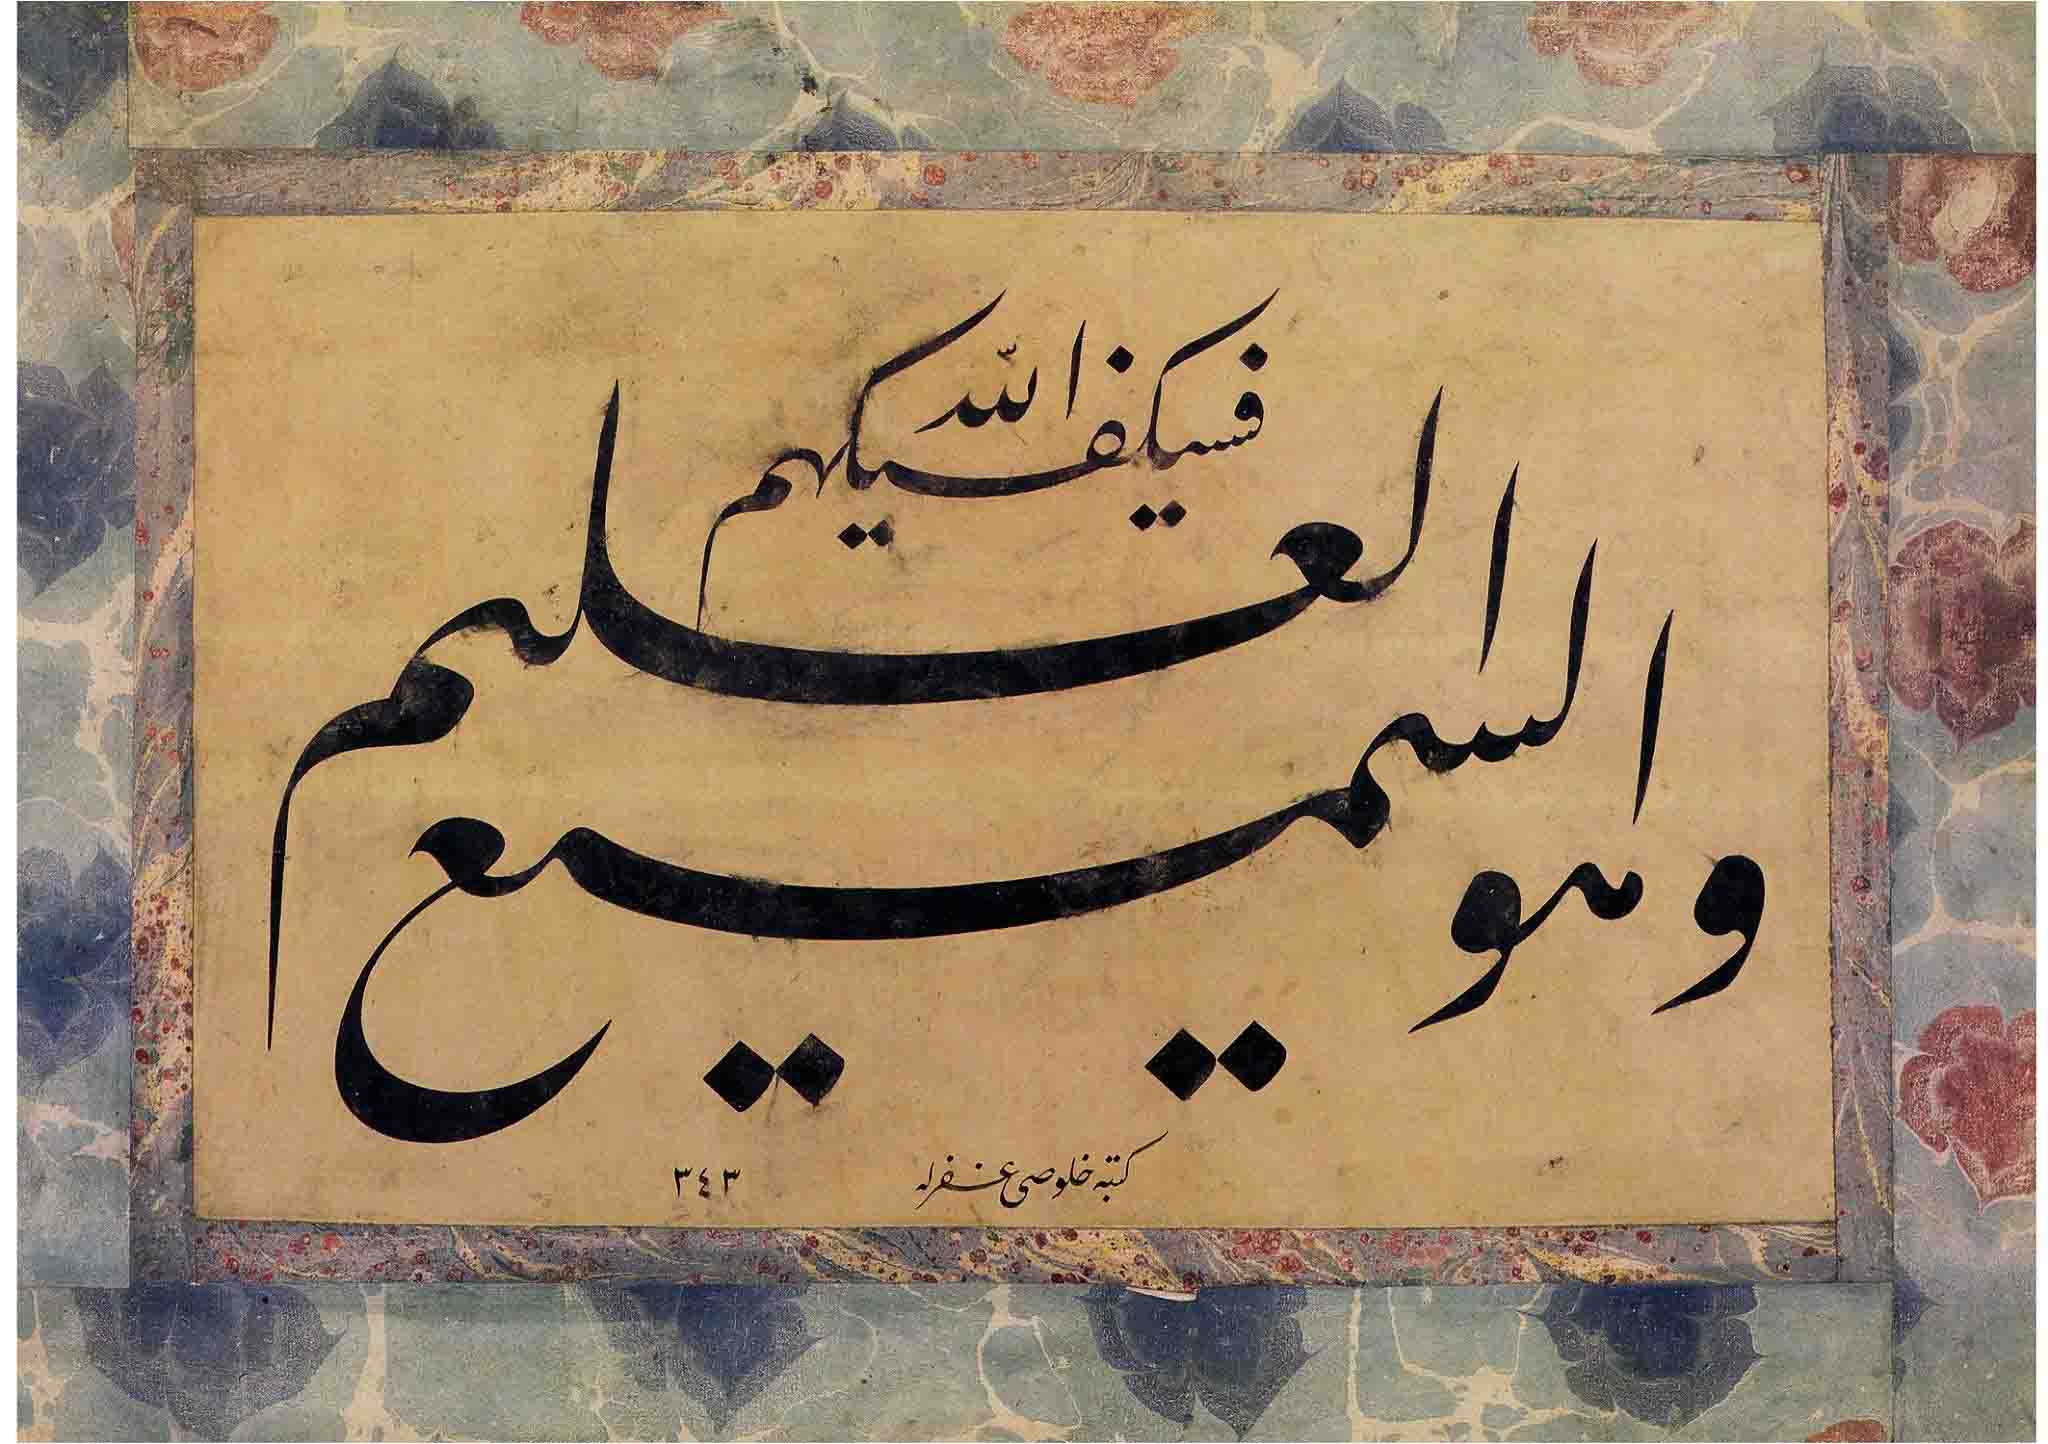 فسيكفيكهم الله
وهو السميع العليم
كتبه خلوصى غفرله
٣٤٣